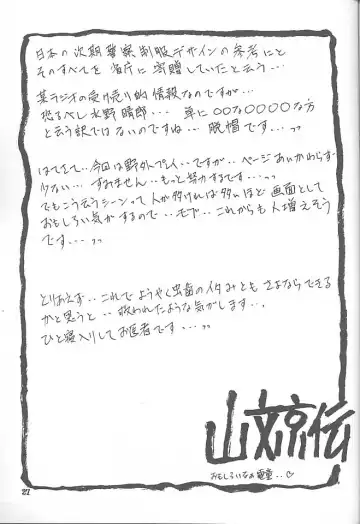 日本の次期警察制服デザインの参考にと
そのすべてを省庁に寄贈していたと云う…
某ラジオの受け売り的情報なのですが…
恐るべし水野晴郎… 単に○○な○○○○な方
と云う訳ではないのですね‥ 脱帽です…ッッ
はてさて…今回は野外プレイ‥ですが‥ページあいかわらず
少ない… すみません‥もっと努力するです…ッッ
でもこう云うシーンって人が多ければ多いほど画面として
おもしろい気がするので‥モブ‥これからも人増えそう
です…ッッ
とりあえず‥これでようやく虫歯のイタみともさよならできる
かと思うと‥救われたような気がします…
ひと寝入りしてお医者です…ッッ
山文京伝
おもしろいなぁ電童…♡
27